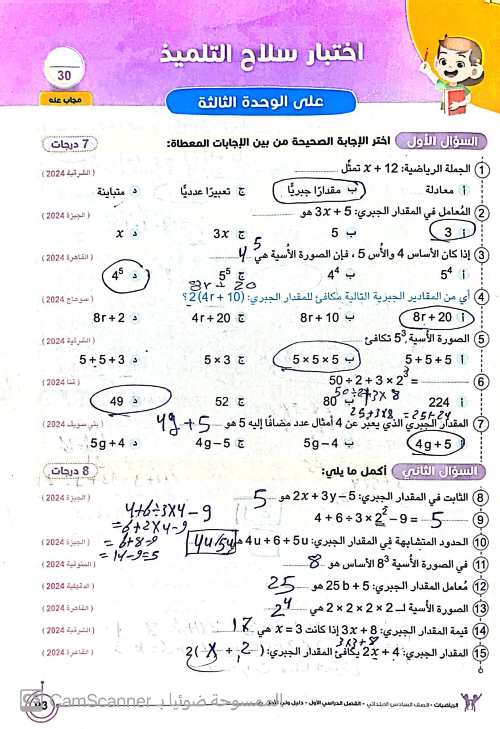 اختبار سلاح التلميذ
30
مجاب عنه
على الوحدة الثالثة
السؤال الأول اختر الإجابة الصحيحة من بين الإجابات المعطاة: 7 درجات
1 الجملة الرياضية: x + 12 تمثل (الشرقية 2024)
أ معادلة ب مقدارًا جبريًّا ج تعبيرًا عدديًّا د متباينة
2 المُعامل في المقدار الجبري: 3x + 5 هو (الجيزة 2024)
أ 3 ب 5 ج 3x د x
3 إذا كان الأساس 4 والأُس 5 ، فإن الصورة الأُسية هي 4⁵ (القاهرة 2024)
أ 5⁴ ب 4⁴ ج 5⁵ د 4⁵
8r + 20
4 أي من المقادير الجبرية التالية مكافئ للمقدار الجبري: 2(4r + 10) ؟ (سوهاج 2024)
أ 8r + 20 ب 8r + 10 ج 4r + 20 د 8r + 2
5 الصورة الأُسية 5³ تكافئ (الشرقية 2024)
أ 5 + 5 + 5 ب 5 × 5 × 5 ج 5 × 3 د 5 + 5 + 3
6 50 ÷ 2 + 3 × 2³ = (قنا 2024)
50 ÷ 2 + 3 × 8
أ 224 ب 80 ج 52 د 49
25 + 3 × 8 = 25 + 24
7 المقدار الجبري الذي يعبر عن 4 أمثال عدد مضافًا إليه 5 هو 4g + 5 (بني سويف 2024)
أ 4g + 5 ب 5g − 4 ج 4g − 5 د 5g + 4
السؤال الثاني أكمل ما يلي: 8 درجات
8 الثابت في المقدار الجبري: 2x + 3y − 5 هو 5 (الجيزة 2024)
9 4 + 6 ÷ 3 × 2² − 9 = 5
4 + 6 ÷ 3 × 4 − 9
= 6 + 2 × 4 − 9
= 6 + 8 − 9
= 14 − 9 = 5
10 الحدود المتشابهة في المقدار الجبري: 4u + 6 + 5u هي 4u / 5u (الجيزة 2024)
11 في الصورة الأسية 8³ الأساس هو 8 (المنوفية 2024)
12 مُعامل المقدار الجبري: 25 b + 5 هو 25 (الدقهلية 2024)
13 الصورة الأسية لـ 2 × 2 × 2 × 2 هي 2⁴ (القاهرة 2024)
14 قيمة المقدار الجبري: 3x + 8 إذا كانت x = 3 هي 17 (الشرقية 2024)
3×3+8
15 المقدار الجبري: 2x + 4 يكافئ المقدار الجبري: 2( x + 2 ) (القاهرة 2024)
الرياضيات - الصف السادس الابتدائي - الفصل الدراسي الأول - دليل ولي الأمر
الممسوحة ضوئيا بـ CamScanner